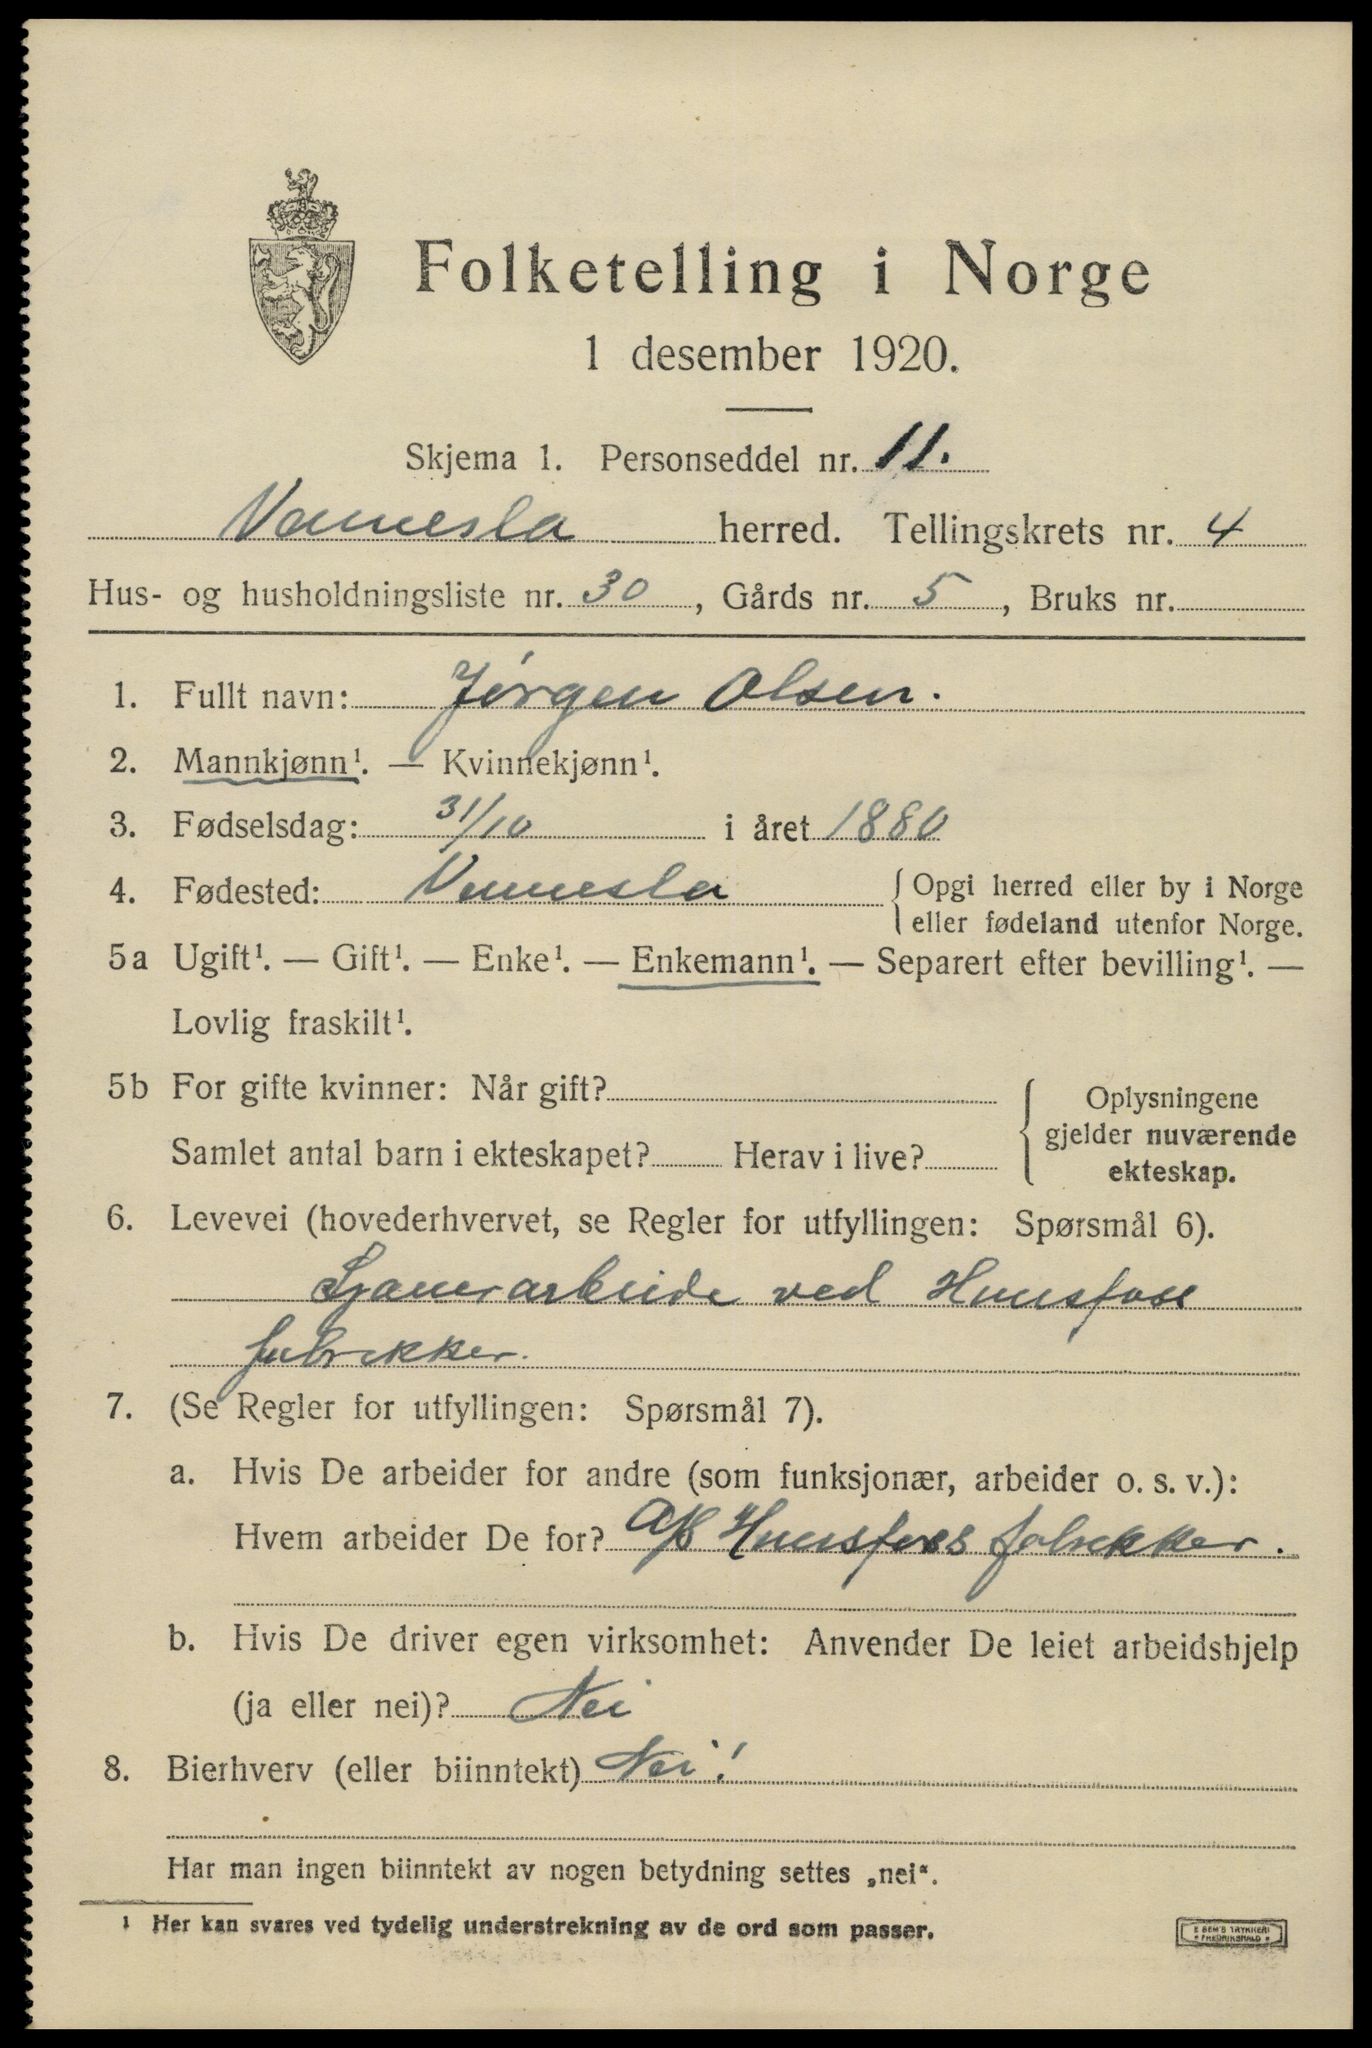 Folketelling i Norge
1 desember 1920.
Skjema 1. Personseddel nr. 11.
Vennesla herred. Tellingskrets nr. 4
Hus- og husholdningsliste nr. 30, Gårds nr. 5, Bruks nr.
1. Fullt navn: Jørgen Olsen.
2. Mannkjønn¹. — Kvinnekjønn¹.
3. Fødselsdag: 31/10 i året 1880
4. Fødested: Vennesla { Opgi herred eller by i Norge
eller fødeland utenfor Norge.
5a Ugift¹. — Gift¹. — Enke¹. — Enkemann¹. — Separert efter bevilling¹. —
Lovlig fraskilt¹.
5b For gifte kvinner: Når gift?
Samlet antal barn i ekteskapet? Herav i live?
{ Oplysningene
gjelder nuværende
ekteskap.
6. Levevei (hovederhvervet, se Regler for utfyllingen: Spørsmål 6).
ved Hunsfoss
fabrikker.
7. (Se Regler for utfyllingen: Spørsmål 7).
a. Hvis De arbeider for andre (som funksjonær, arbeider o. s. v.):
Hvem arbeider De for? A/S Hunsfoss fabrikker.
b. Hvis De driver egen virksomhet: Anvender De leiet arbeidshjelp
(ja eller nei)? Nei
8. Bierhverv (eller biinntekt) Nei!
Har man ingen biinntekt av nogen betydning settes „nei“.
1 Her kan svares ved tydelig understrekning av de ord som passer.
E SEM'S TRYKKERI
FREDRIKSHALD